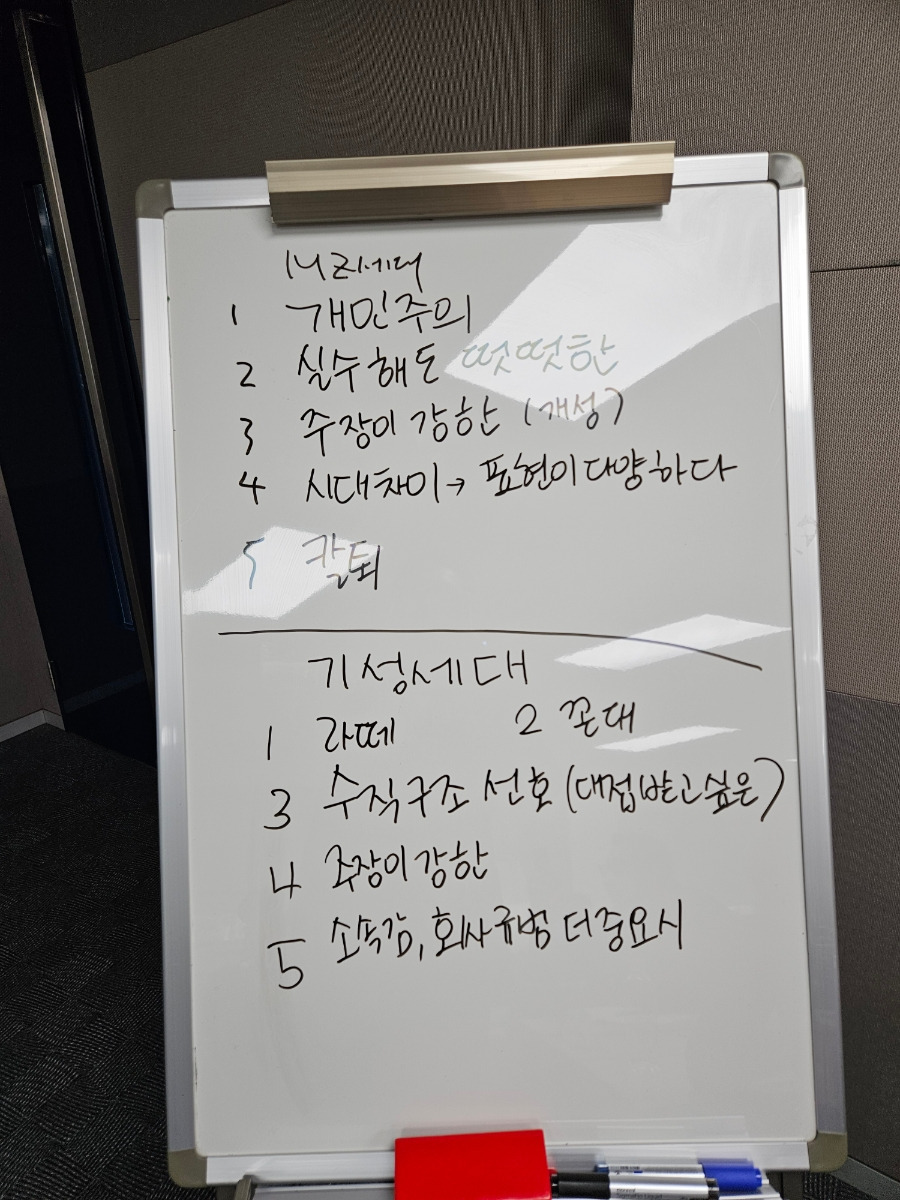 MZ세대
1 개인주의
2 실수해도 떳떳한
3 주장이 강한 (개성)
4 시대차이 → 표현이 다양하다
5 칼퇴
기성세대
1 라떼 2 꼰대
3 수직구조 선호 (대접받고싶은)
4 주장이 강한
5 소속감, 회사규범 더 중요시